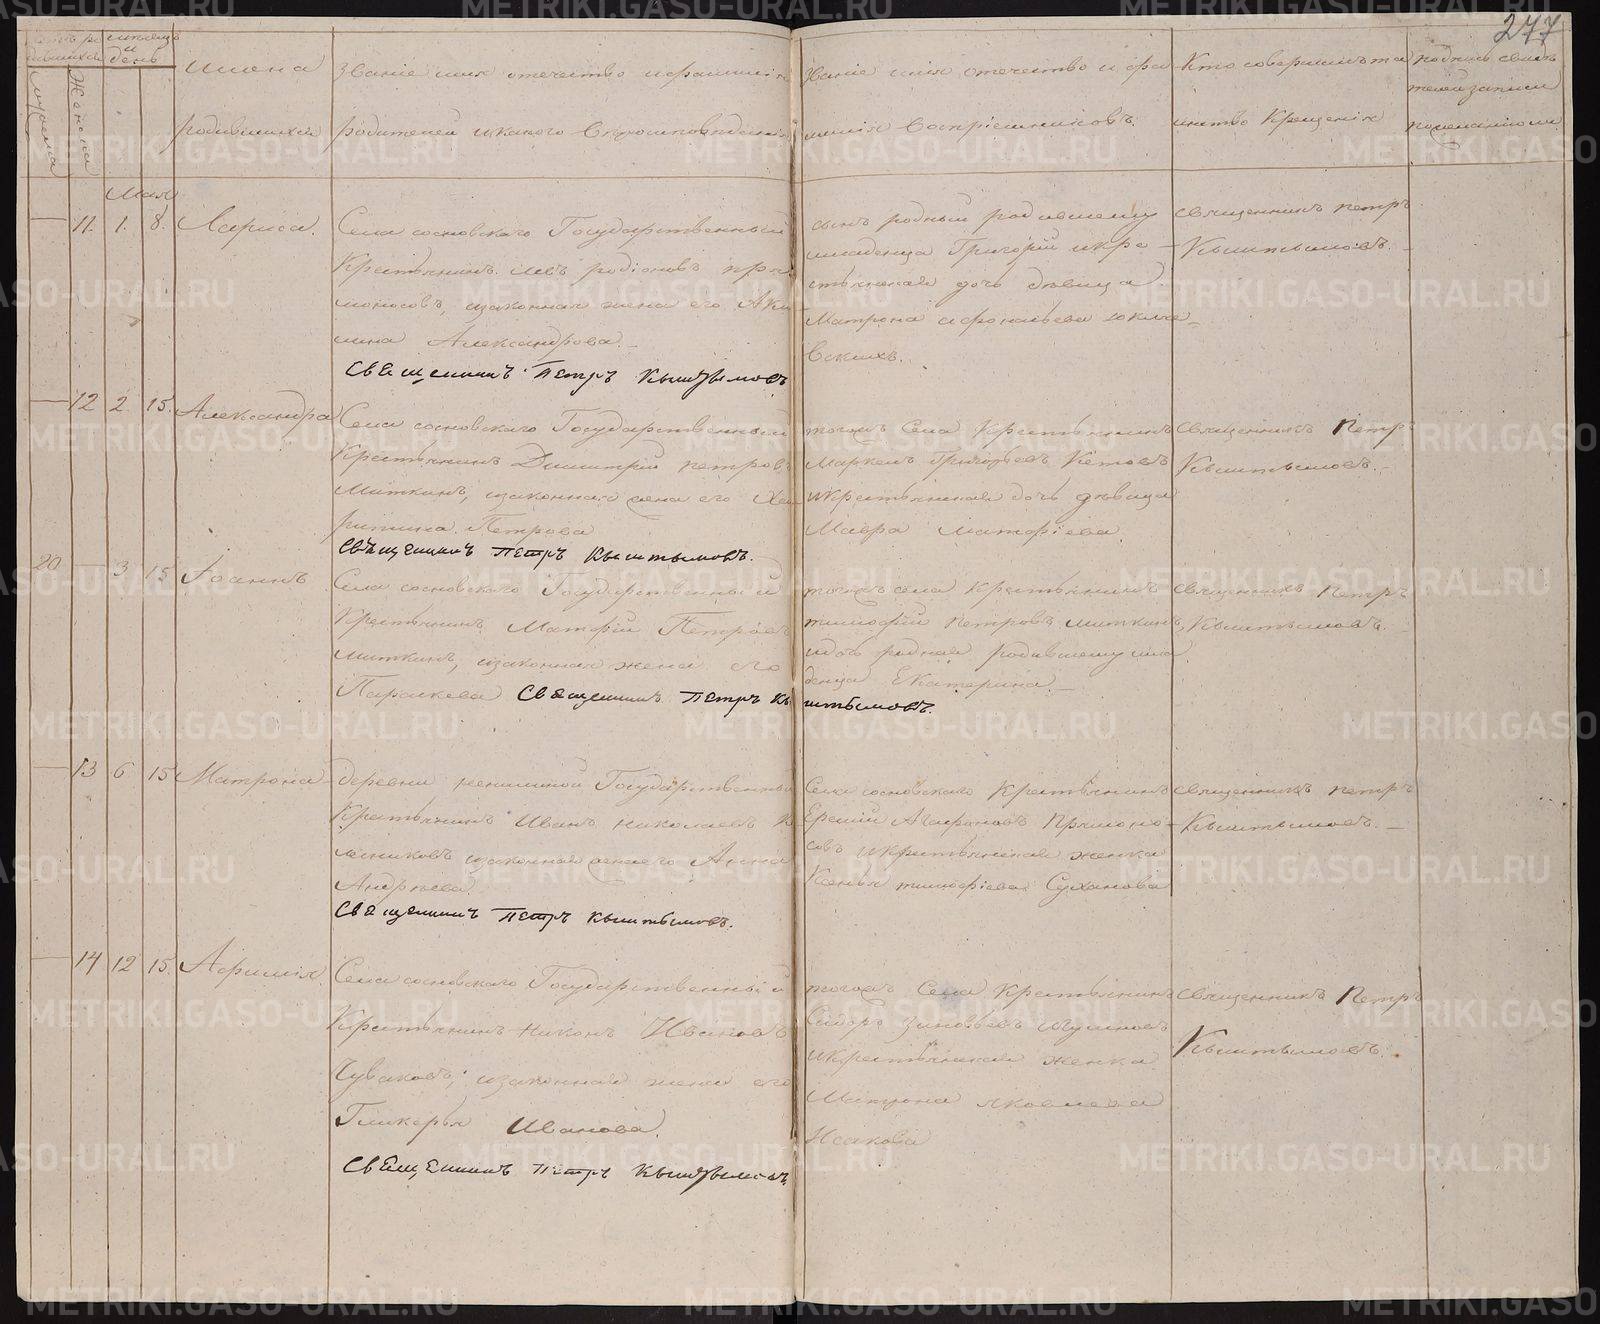 277
имена
родившихся
Званіе имя отечество и фамилія
родителей и какого вероисповеданія
Званіе имя отечество и фа
милія воспріемниковъ.
Кто совершилъ та
инство крещенія
подпись свиде
телей записи
Мая
11. 1. 8. Лариса.
Села сосновскаго Государственный
Крестьянинъ Левъ родіоновъ пря
моносовъ, изаконная жена его Аки
лина Александрова.
Священникъ Петръ Кыштымовъ
сынъ родный родившемуся
младенца Григорій икре
стьянская дочь девица
Матрона
вскихъ.
священникъ петръ
Кыштымовъ.
12 2. 15. Александра
Села сосновскаго Государственный
Крестьянинъ Димитрій петровъ
Миткинъ, изаконная жена его Ха
ритина Петрова
Священникъ Петръ Кыштымовъ.
тогожъ Села Крестьянинъ
Маркелъ Григорьевъ Кетовъ
икрестьянская дочь девица
Мавра Матфіева.
Священникъ Петръ
Кыштымовъ.
20 3 15 Іоаннъ
Села сосновскаго Государственный
Крестьянинъ Матфій Петровъ
миткинъ, изаконная жена его
Параскева Священникъ Петръ Кы
тогожъ села Крестьянинъ
тимофій петровъ миткинъ,
идочь родная родившемуся мла
денца Екатерина
штымовъ.
священникъ Петръ
Кыштымовъ.
13 6 15 Матрона
деревни Государственный
Крестьянинъ Иванъ николаевъ К
лесниковъ изаконная жена его Анна
Андреева
Священникъ Петръ Кыштымовъ.
Села сосновскаго Крестьянинъ
Еремій Агафоновъ Прямоно
совъ икрестьянская женка
Ксенья тимофіева Суханова
священникъ петръ
Кыштымовъ.
14 12 15. Афимія
Села сосновскаго Государственный
Крестьянинъ Никонъ Ивановъ
Чуваковъ, изаконная жена его
Гликерья Иванова.
Священникъ Петръ Кыштымовъ
тогожъ Села Крестьянинъ
Сидоръ Зиновьевъ
икрестьянская женка
Матрона яковлева
Исакова
Священникъ Петръ
Кыштымовъ.
METRIKI.GASO-URAL.RU